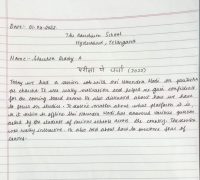 Date:- 01-04-2022.
The Aarunyam School
Hyderabad, Telangana
Name:- Shushon Reddy A
परीक्षा पे चर्चा (2022)
Today we had a session with shri Narendra Modi on pariksha
pe charcha. It was really motivation and helped us gain confidence
for the coming board exams. He also discussed about how we have
to focus in studies. It doesn't matter about what platform it is,
is it online or offline. Shri Narendra Modi has answered various questions
asked by the students of various schools across the country. The session
was really interactive. He also told about how to overcome fear of
exams.